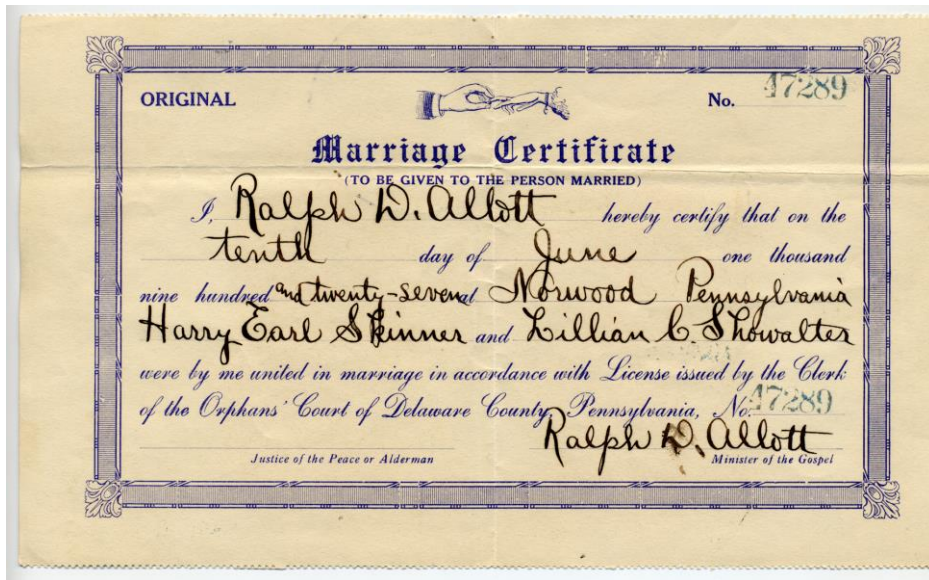 ORIGINAL
No. 47289
Marriage Certificate
(TO BE GIVEN TO THE PERSON MARRIED)
I, Ralph D. Allott hereby certify that on the
tenth day of June one thousand
nine hundred and twenty-seven at Norwood Pennsylvania
Harry Earl Skinner and Lillian C. Showalter
were by me united in marriage in accordance with License issued by the Clerk
of the Orphans' Court of Delaware County, Pennsylvania, No. 47289
Ralph D. Allott
Justice of the Peace or Alderman
Minister of the Gospel